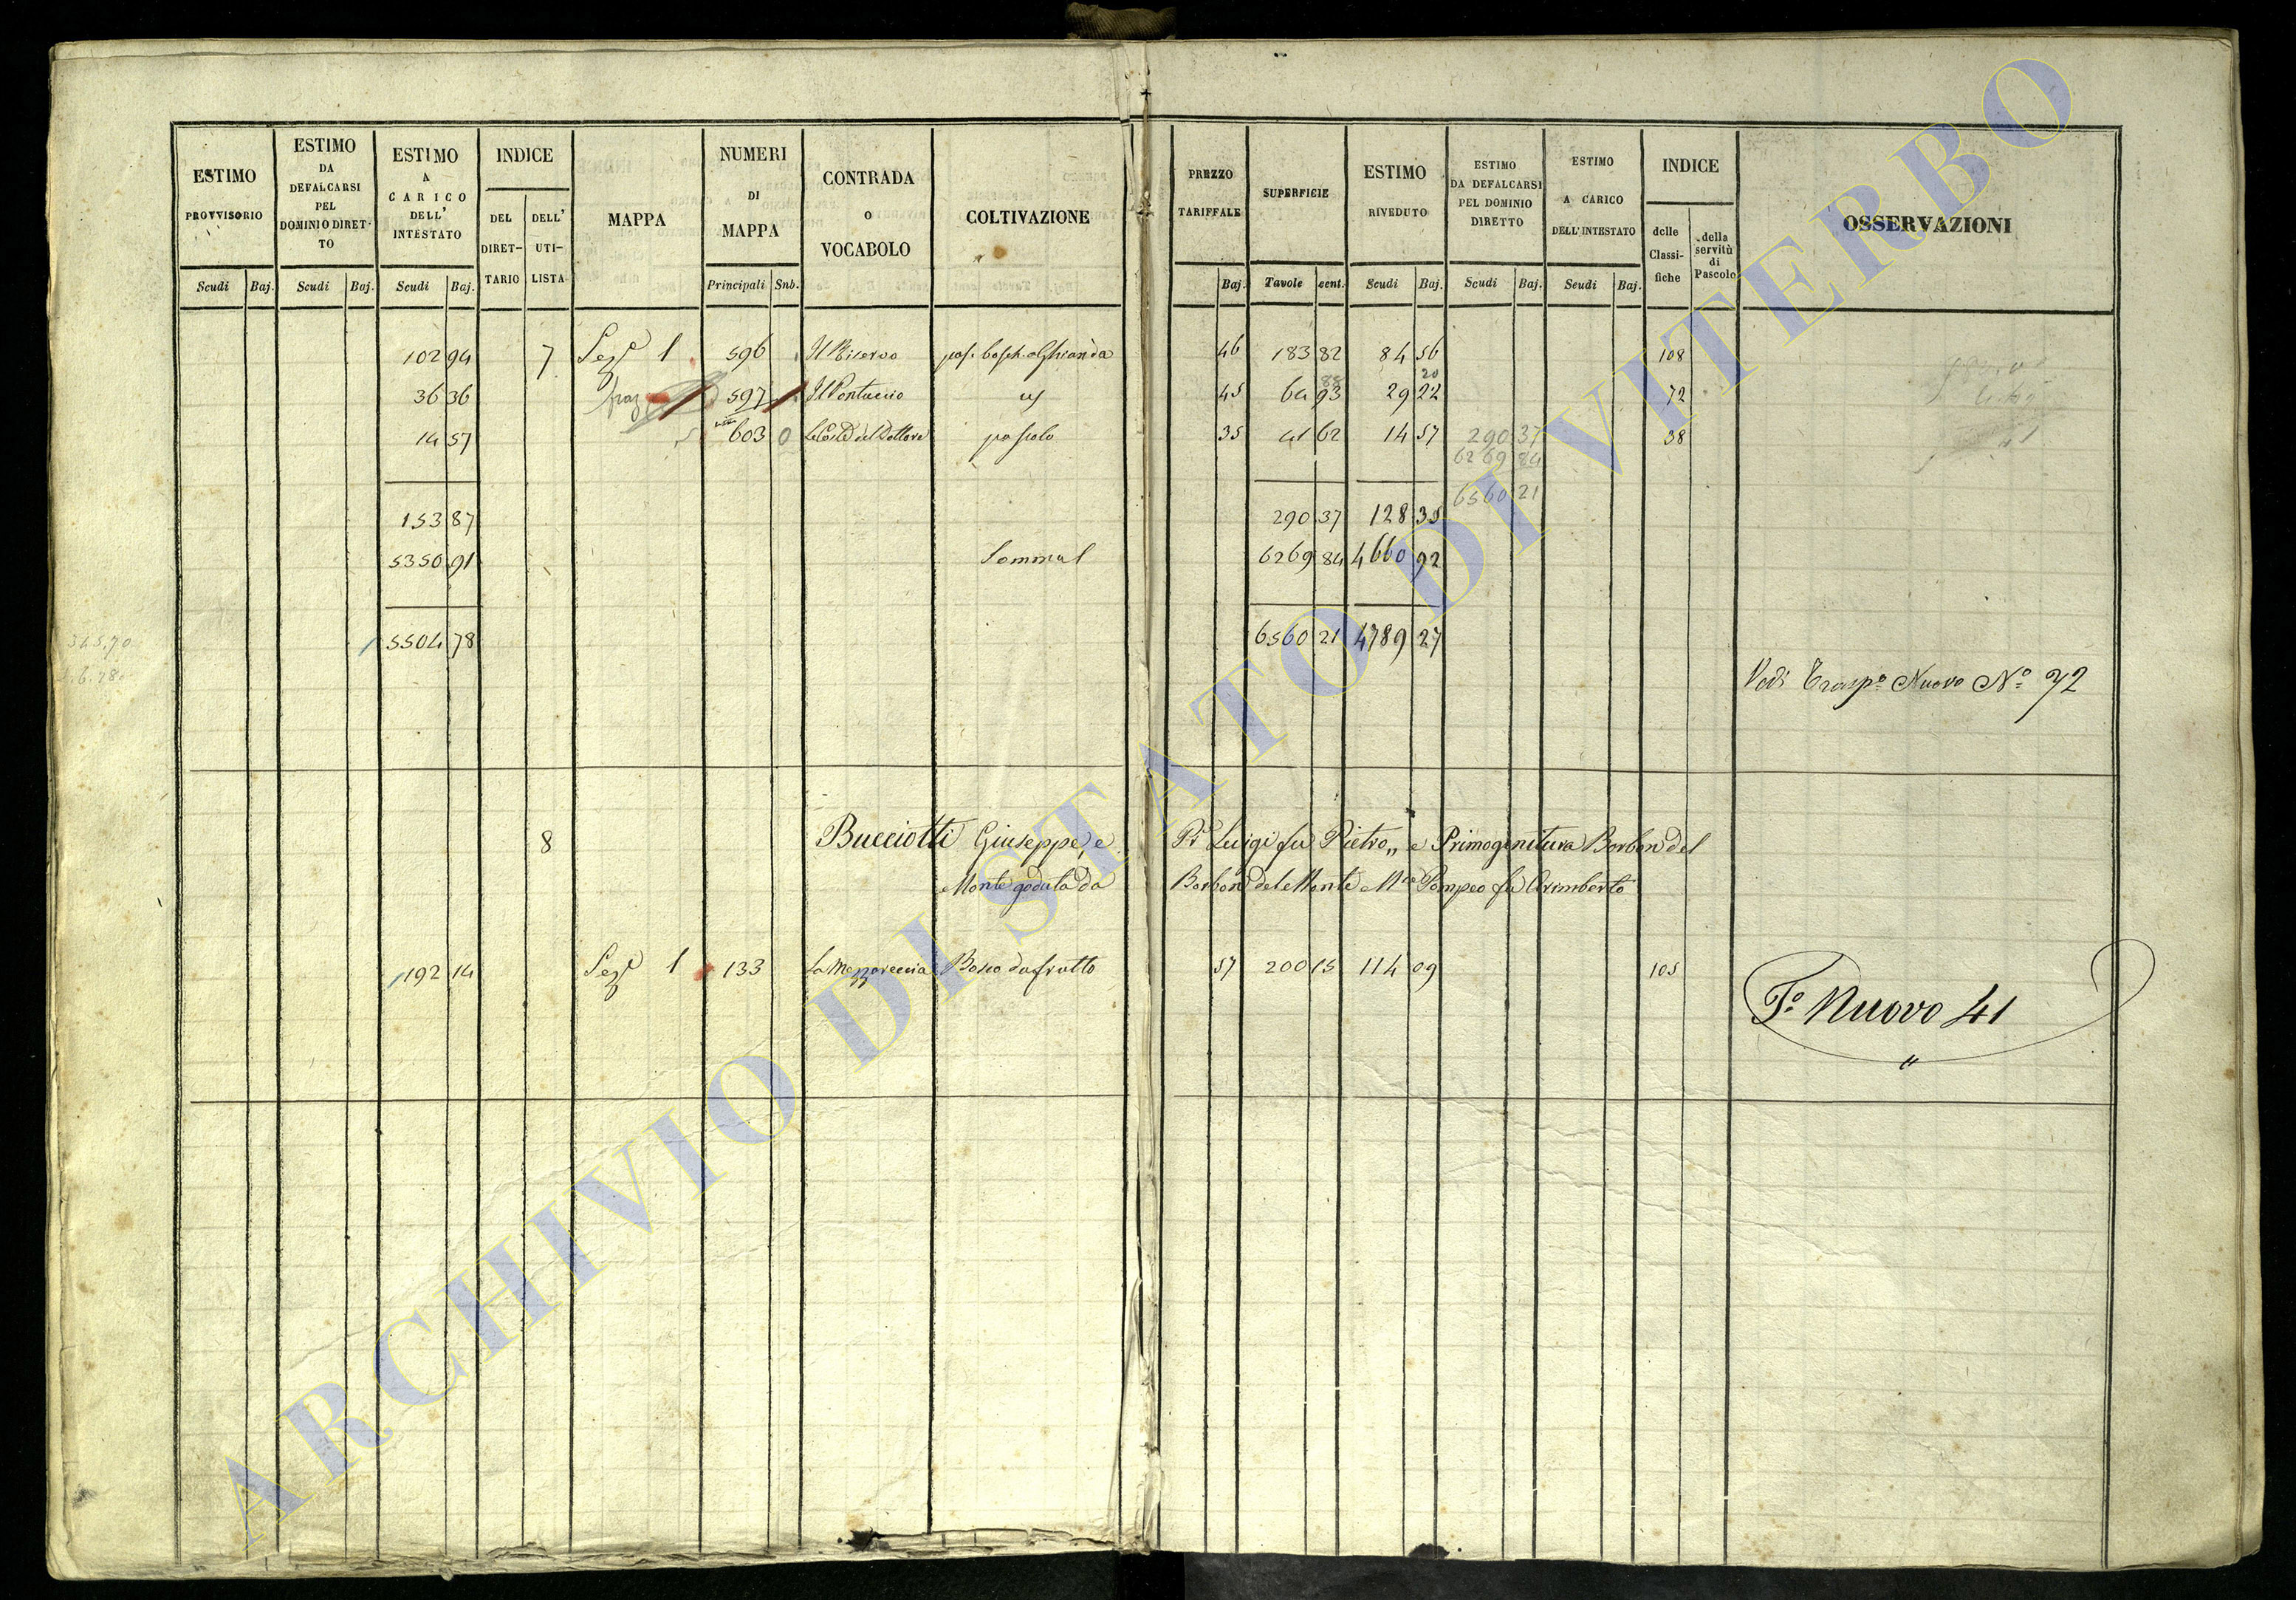 ESTIMO PROVVISORIO
ESTIMO DA DEFALCARSI PEL DOMINIO DIRETTO
ESTIMO A CARICO DELL' INTESTATO
INDICE
DEL DIRETTARIO
DELL' UTILISTA
MAPPA
NUMERI DI MAPPA
CONTRADA O VOCABOLO
COLTIVAZIONE
PREZZO TARIFFALE
SUPERFICIE
ESTIMO RIVEDUTO
ESTIMO DA DEFALCARSI PEL DOMINIO DIRETTO
ESTIMO A CARICO DELL'INTESTATO
INDICE
delle Classifiche
della servitù di Pascolo
OSSERVAZIONI
Scudi Baj. Scudi Baj. Scudi Baj. Principali Snb. Baj. Tavole cent. Scudi Baj. Scudi Baj. Scudi Baj.
102 94 7 Sezᵉ 1 596 Il Riservo pas. bosch. a Ghianda 46 183 82 84 56 108
36 36 fraz 597 Il Pontuccio 45 64 93 29 22 72
88 20
14 57 603 0 pascolo 35 41 62 14 57 290 37 38
6269 84
6560 21
153 87 290 37 128 35
5350 91 Somma 1 6269 84 4660 92
5504 78 6560 21 4789 27
345,70
Vedi Traspº Nuovo Nº 72
8 Bucciotti Giuseppe, e Pr Luigi fu Pietro,, e Primogenitura Borbon del
Monte goduta da Borbon del Monte Mse Pompeo fu Arimberto
192 14 Sezᵉ 1 133 La Mezzareccia Bosco da frutto 57 200 15 114 09 105
Tº Nuovo 41
ARCHIVIO DI STATO DI VITERBO